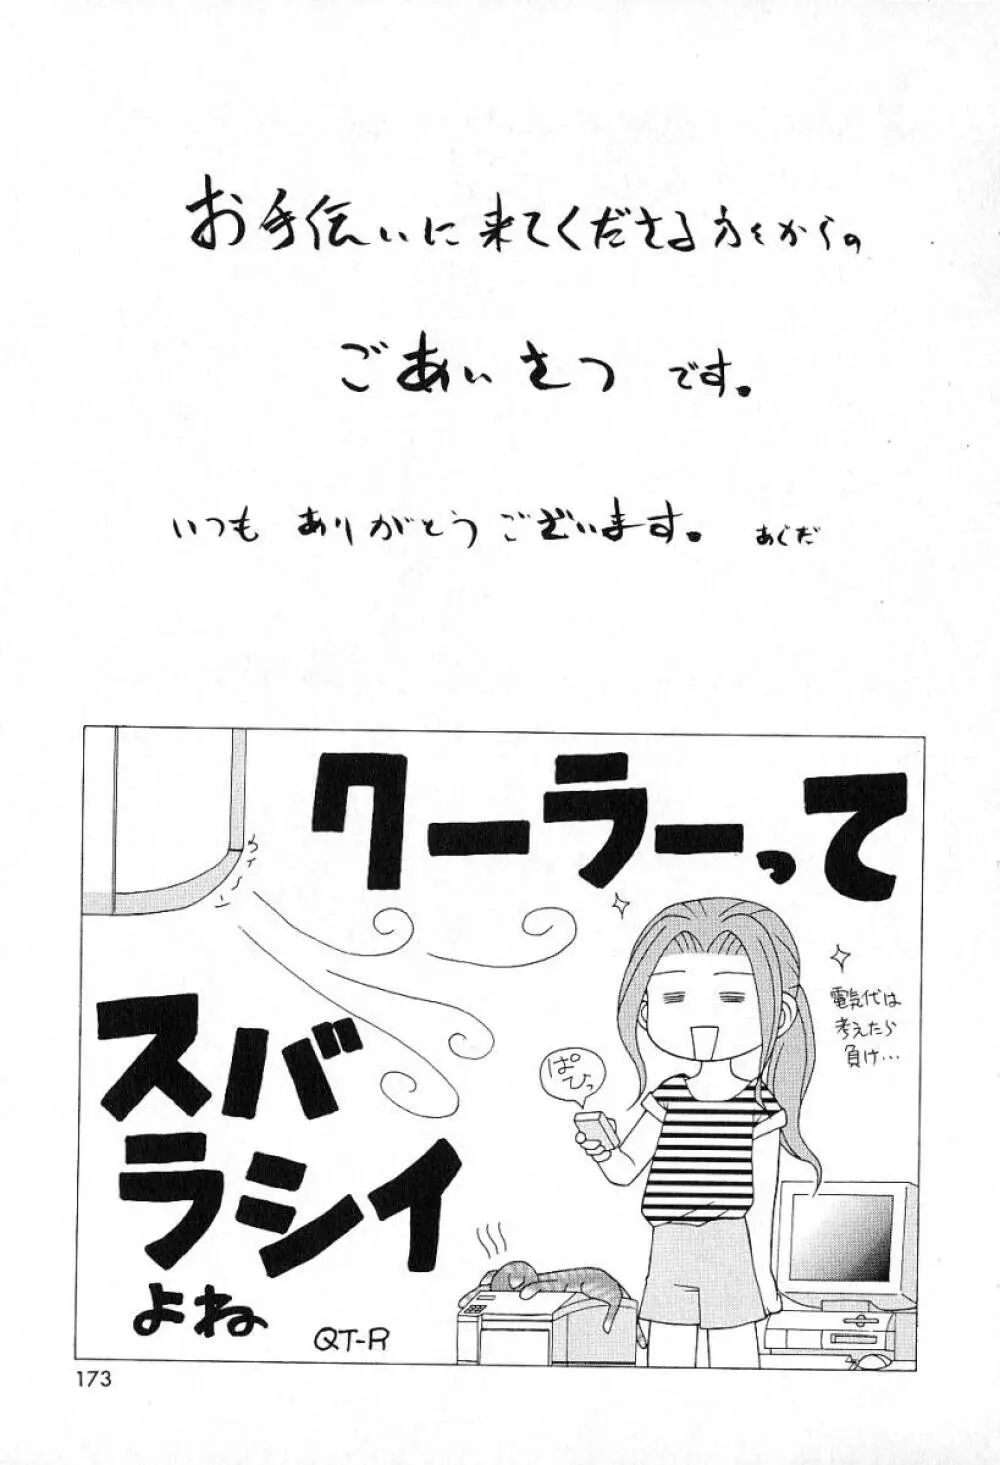 お手伝いに来てくださる方々からの
ごあいさつです。
いつも ありがとうございます。 あぐだ
クーラーって
スバ
ラシイ
よね
電気代は
考えたら
負け…
ぱ
ぴっ
QT-R
173